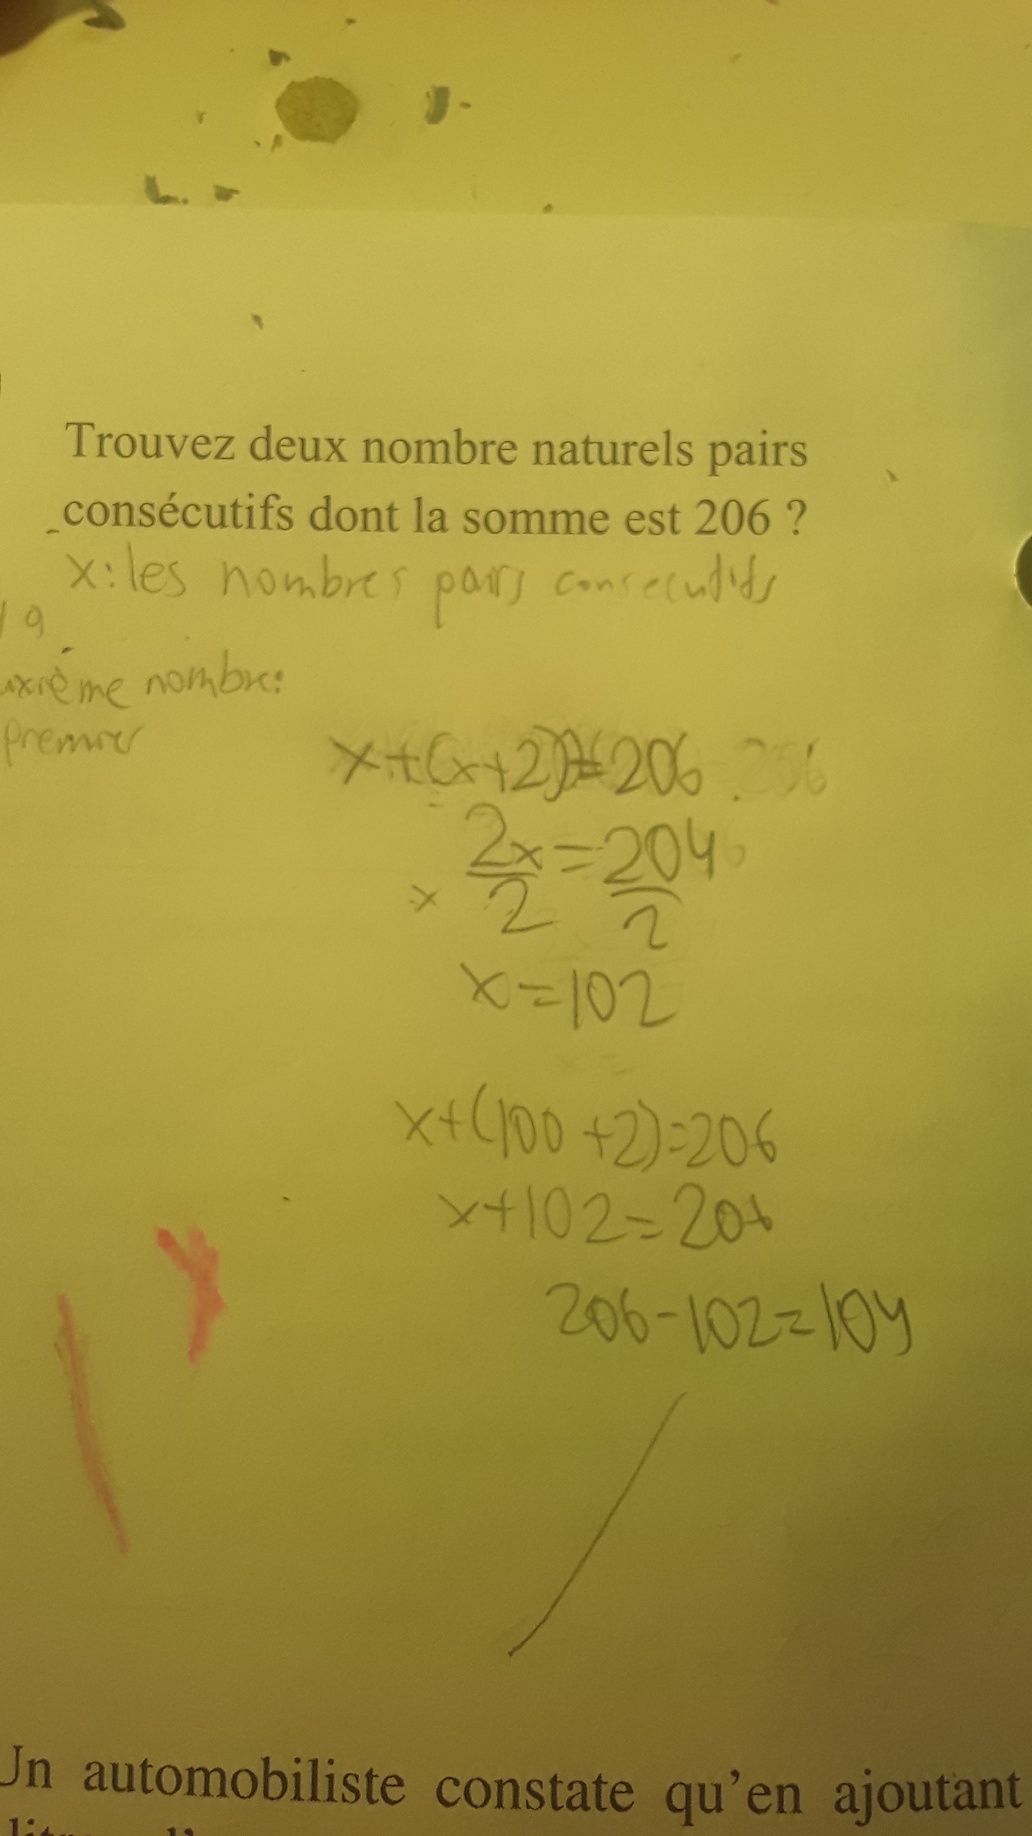 Trouvez deux nombre naturels pairs
consécutifs dont la somme est 206 ?
x: les nombres pairs consecutifs
19
uxième nombre:
premier
x+(x+2)=206
2x=204
2 2
x=102
x+(100+2)=206
x+102=206
206-102=104
Un automobiliste constate qu'en ajoutant